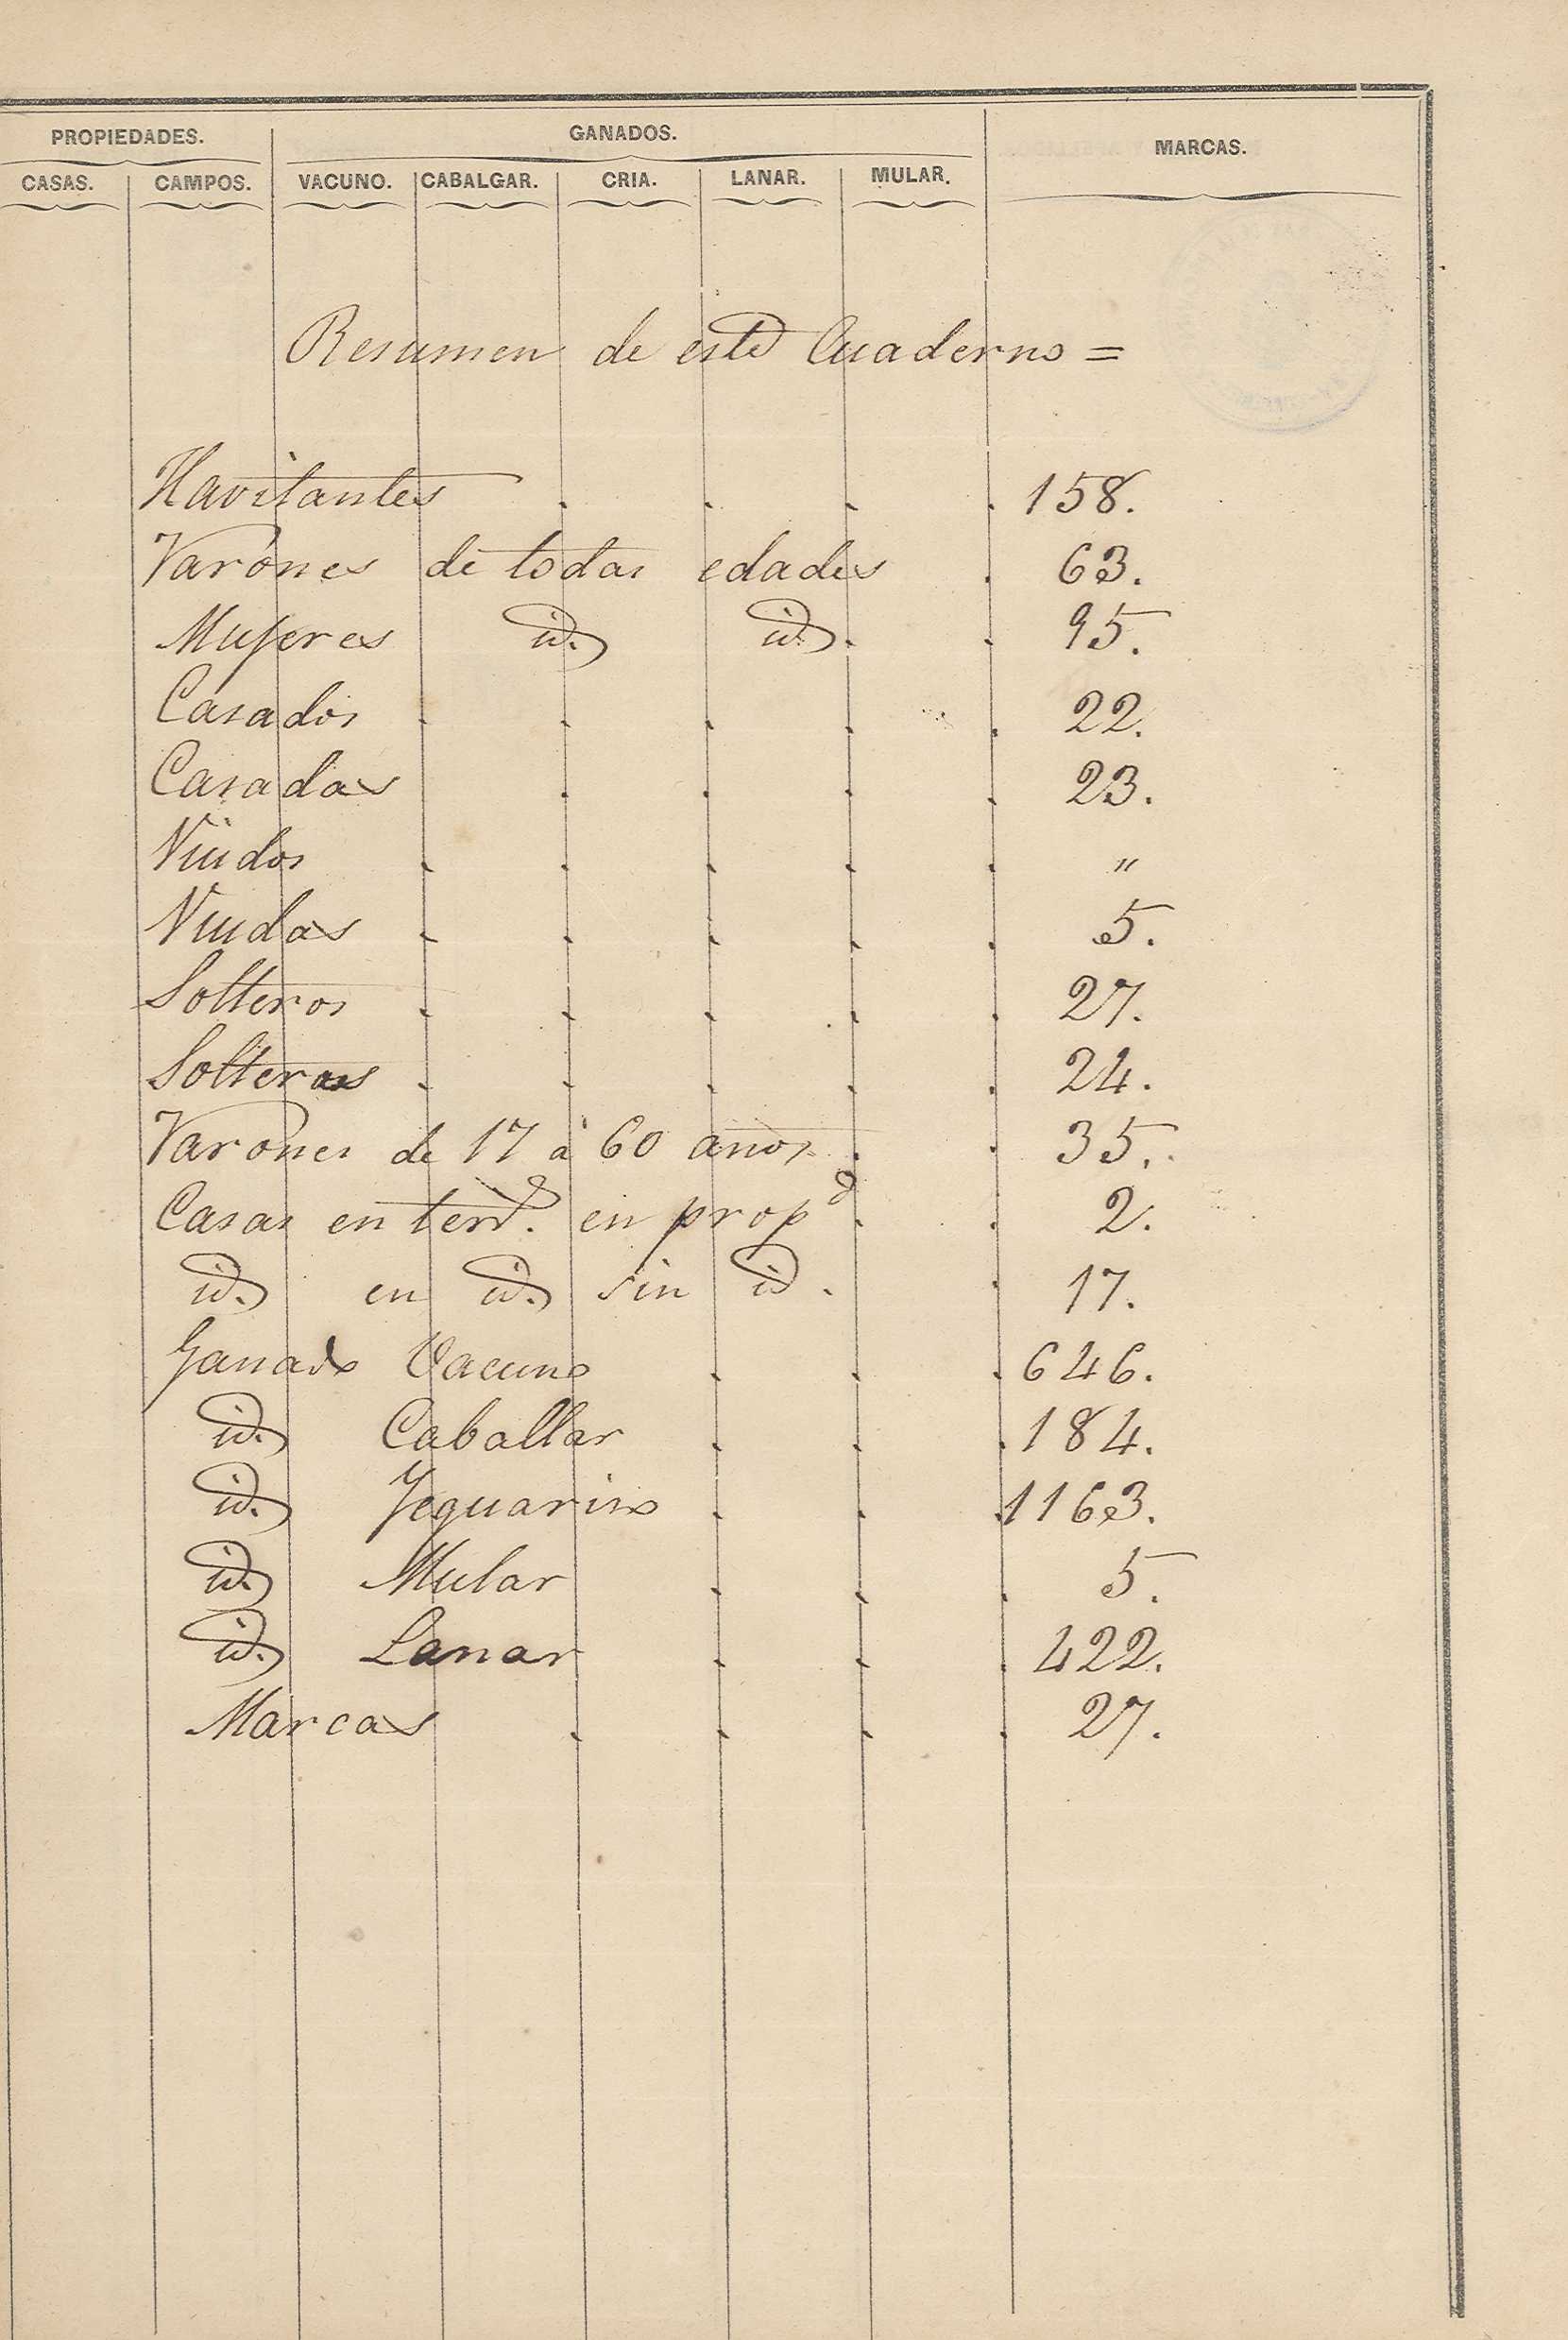 PROPIEDADES. GANADOS. MARCAS.
CASAS. CAMPOS. VACUNO. CABALGAR. CRIA. LANAR. MULAR.
Resumen de este Cuaderno =
Havitantes . . . . 158.
Varones de todas edades . 63.
Mujeres id. id. . . 95.
Casados . . . . . 22.
Casadas . . . . 23.
Viudos . . . . . "
Viudas . . . . . 5.
Solteros . . . . . 27.
Solteras . . . . . 24.
Varones de 17 á 60 años . . 35.
Casas en en propd . . 2.
id. en id. sin id . . 17.
Ganado Vacuno . . . 646.
id. Caballar . . . 184.
id. Yeguariso . . . 1163.
id. Mular . . . 5.
id. Lanar . . . 422.
Marcas . . . . 27.